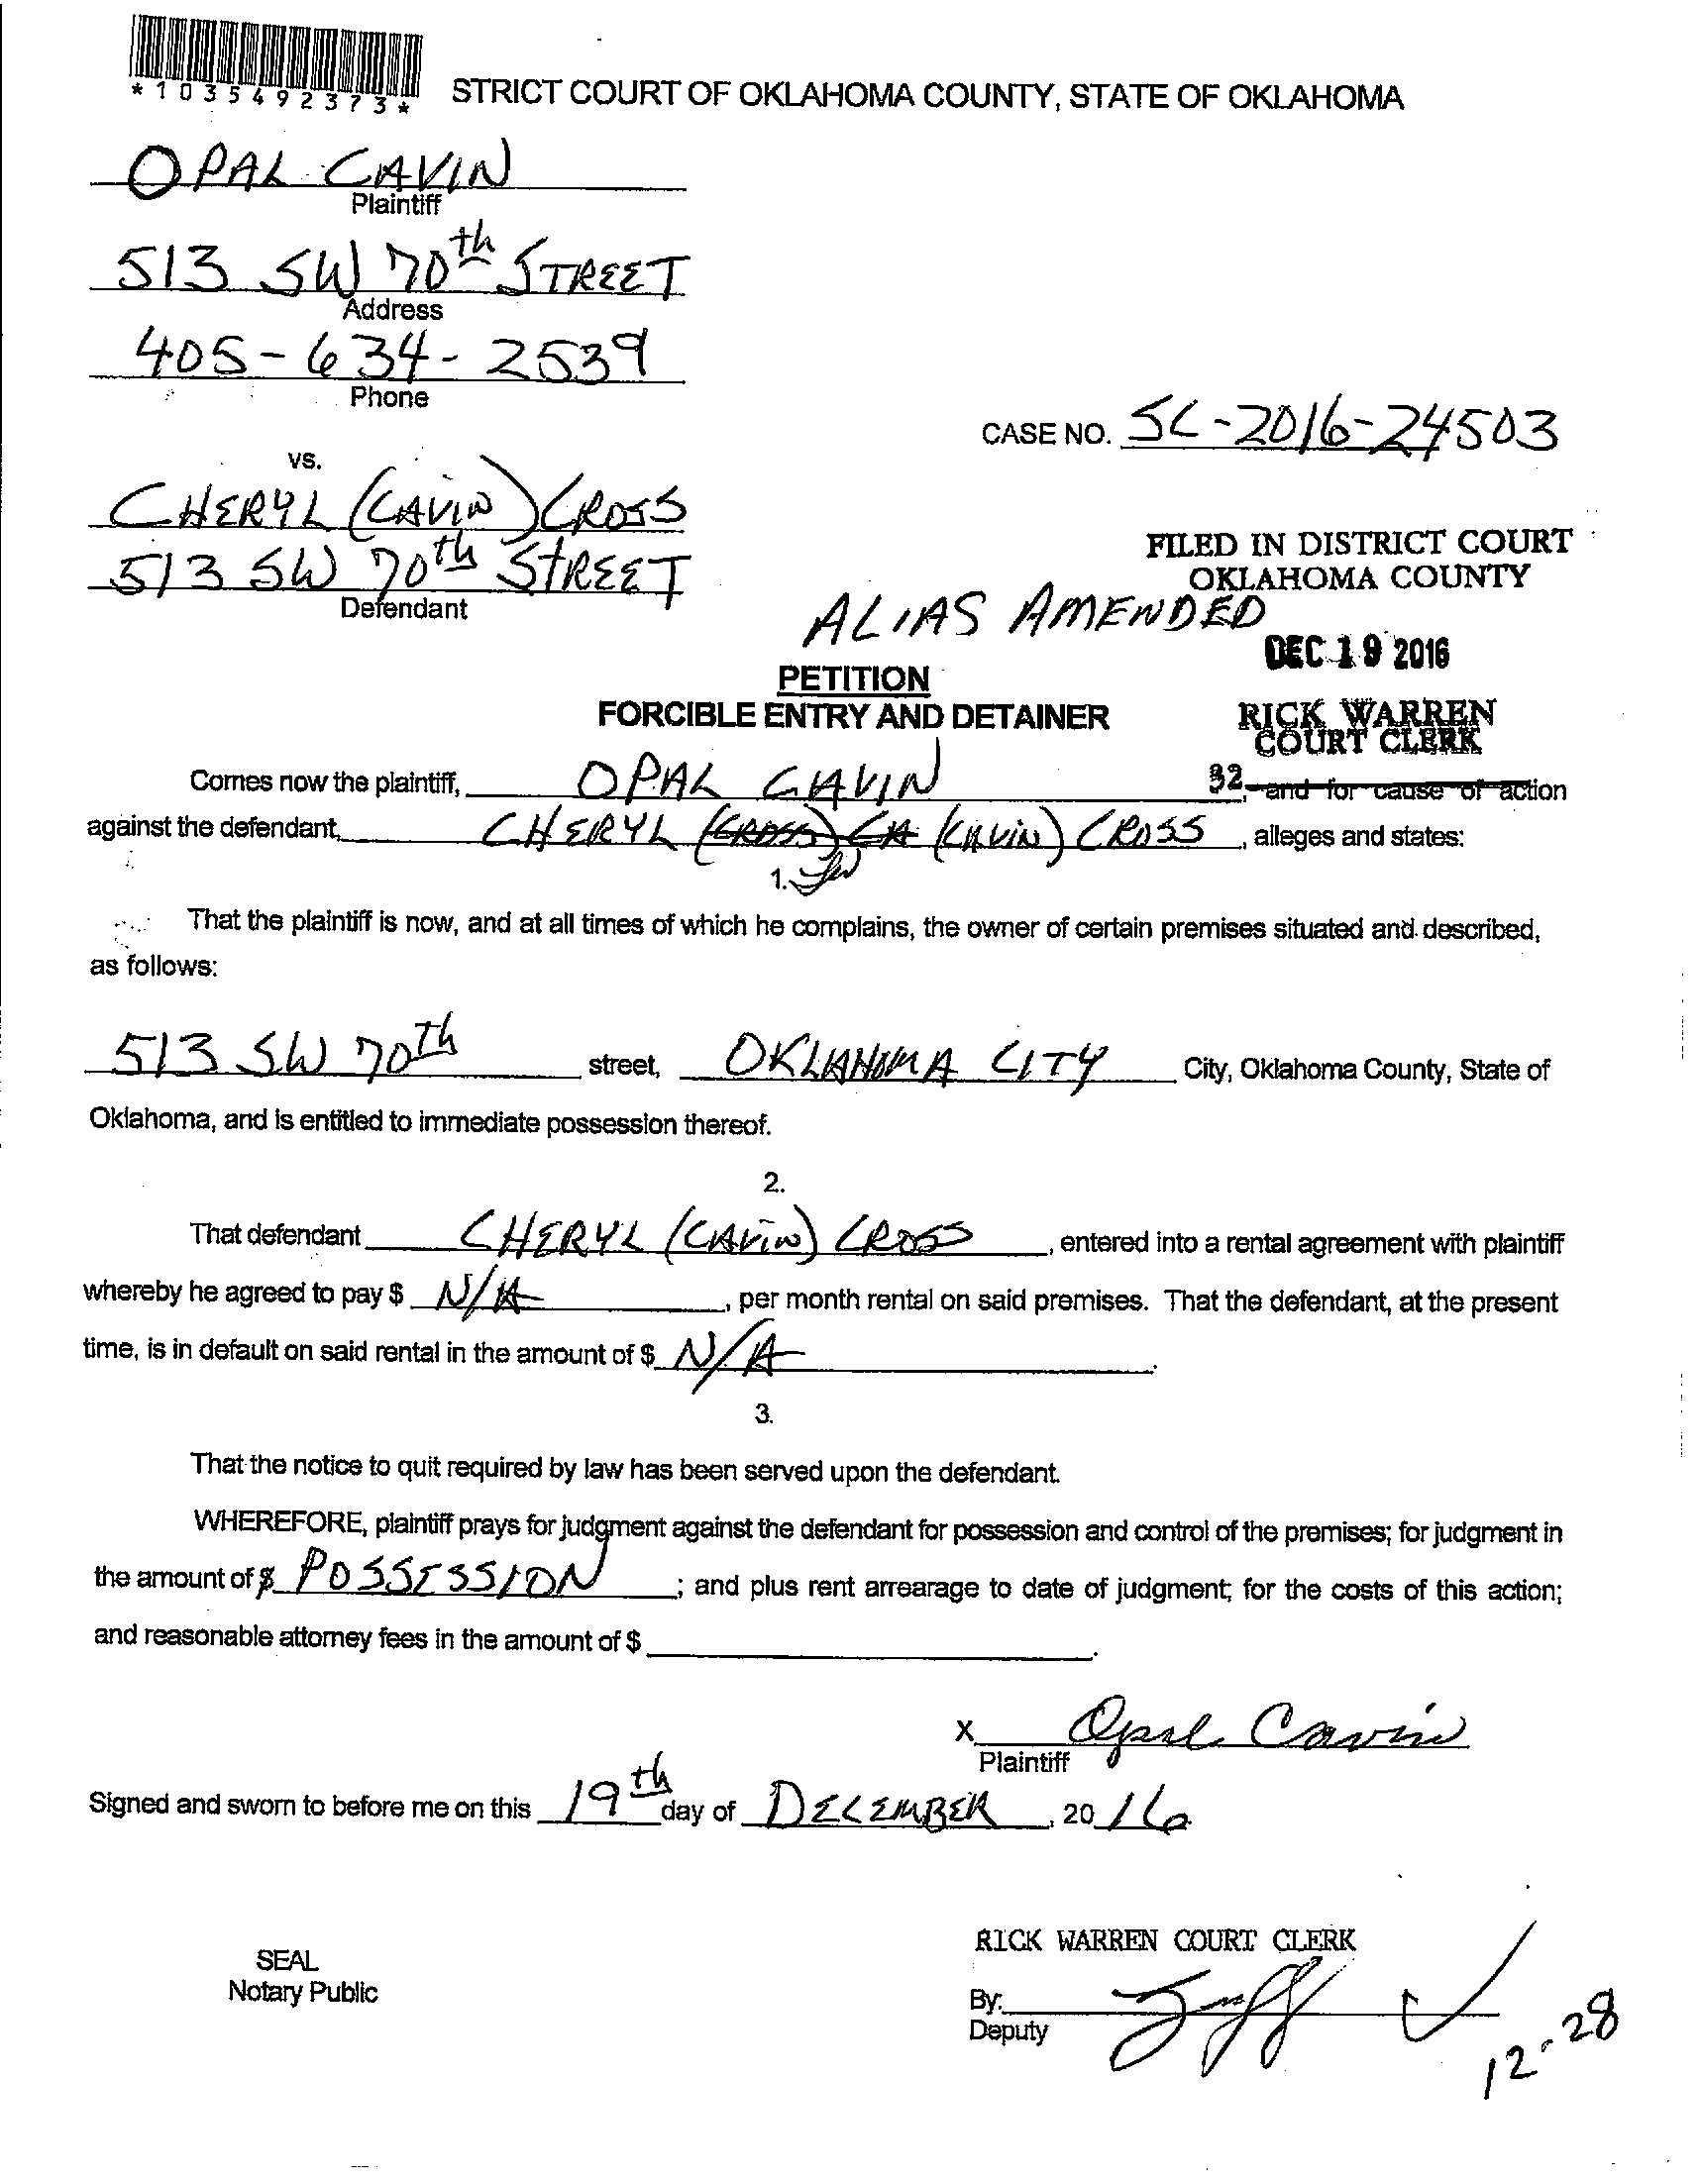 *1035492373*
STRICT COURT OF OKLAHOMA COUNTY, STATE OF OKLAHOMA
OPAL CAVIN
Plaintiff
513 SW 70th STREET
Address
405-634-2539
Phone
CASE NO. SC-2016-24503
vs.
CHERYL (CAVIN) CROSS
513 SW 70th STREET
Defendant
FILED IN DISTRICT COURT
OKLAHOMA COUNTY
ALIAS AMENDED
DEC 19 2016
PETITION
FORCIBLE ENTRY AND DETAINER
RICK WARREN
COURT CLERK
32
Comes now the plaintiff, OPAL CAVIN, and for cause of action
against the defendant, CHERYL (CROSS) CA (CAVIN) CROSS, alleges and states:
1.
That the plaintiff is now, and at all times of which he complains, the owner of certain premises situated and described,
as follows:
513 SW 70Th street, OKLAHOMA CITY City, Oklahoma County, State of
Oklahoma, and is entitled to immediate possession thereof.
2.
That defendant CHERYL (CAVIN) CROSS, entered into a rental agreement with plaintiff
whereby he agreed to pay $ N/A, per month rental on said premises. That the defendant, at the present
time, is in default on said rental in the amount of $ N/A.
3.
That the notice to quit required by law has been served upon the defendant.
WHEREFORE, plaintiff prays for judgment against the defendant for possession and control of the premises; for judgment in
the amount of $ POSSESSION; and plus rent arrearage to date of judgment; for the costs of this action;
and reasonable attorney fees in the amount of $.
x Opal Cavin
Plaintiff
Signed and sworn to before me on this 19th day of DECEMBER, 2016
RICK WARREN COURT CLERK
SEAL
Notary Public
By:
Deputy
12-28